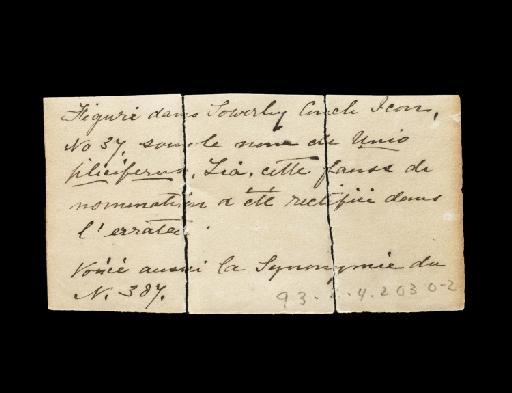 Figuré dans Sowerby Conch Icon,
No 37, sous le nom de Unio
pliciferus, Lea, cette fause de
nomination a eté rectifiée dans
l'errata.
Voiié aussi la Synonymie du
N. 387.
93. 2. 4. 2030-2